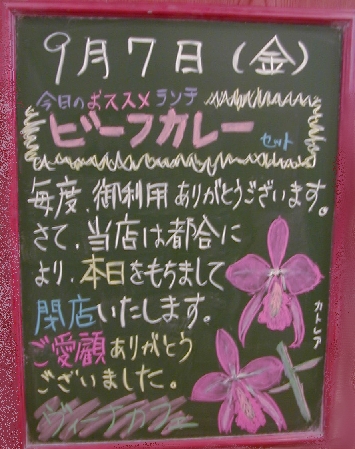 9月7日(金)
今日のおススメランチ
ビーフカレーセット
毎度、御利用ありがとうございます。
さて、当店は都合に
より、本日をもちまして
閉店いたします。
ご愛顧ありがとう
ございました。
カトレア